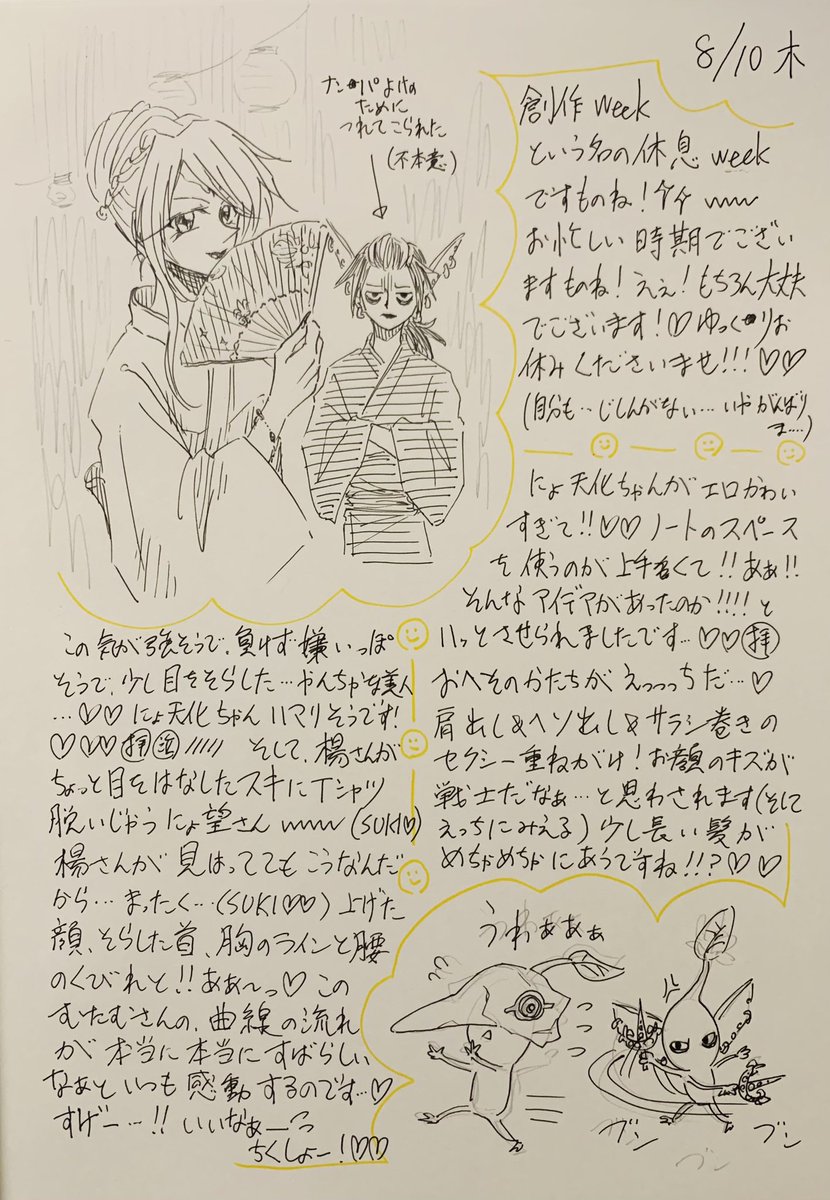 8/10 木
ナンパよけの
ために
つれてこられた
(不本意)
創作week
という名の休息week
ですものね！竹竹 www
お忙しい時期でござい
ますものね！えぇ！もちろん大丈夫
でございます！♡ゆっくりお
休みくださいませ!!!♡♡
(自分も…じしんがない…いやがんばり
ま…)
にょ天化ちゃんがエロかわい
すぎて!!♡♡ノートのスペース
を使うのが上手くて!!あぁ!!
そんなアイデアがあったのか!!!!と
ハッとさせられましたです…♡♡拝
おへそのかたちがえっっっちだ…♡
肩出し&ヘソ出し&サラシ巻きの
セクシー重ねがけ！お顔のキズが
戦士だなぁ…と思わされます(そして
えっちにみえる)少し長い髪が
めちゃめちゃにあうですね!!?♡♡
この気が強そうで、負けず嫌いっぽ
そうで、少し目をそらした…やんちゃな美人
…♡♡にょ天化ちゃんハマりそうです!
♡♡♡拝 ///// そして、楊さんが
ちょっと目をはなしたスキにTシャツ
脱いじゃうにょ望さん www (SUKI♡)
楊さんが見はっててもこうなんだ
から…まったく…(SUKI♡♡)上げた
顔、そらした首、胸のラインと腰
のくびれと!!あぁ〜っ♡この
むたむさんの、曲線の流れ
が本当に本当にすばらしい
なぁといつも感動するのです…♡
すげー…!!いいなぁーっ
ちくしょー!♡♡
うわぁぁぁ
ブン
ブン
ブン